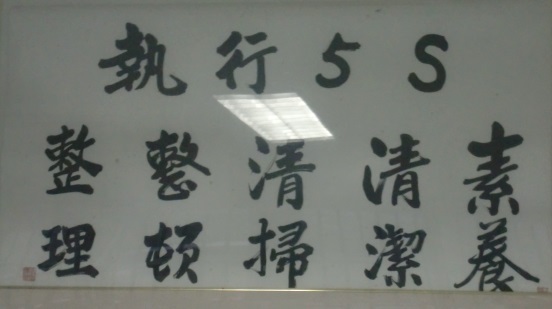 執行5S
整理
整頓
清掃
清潔
素養